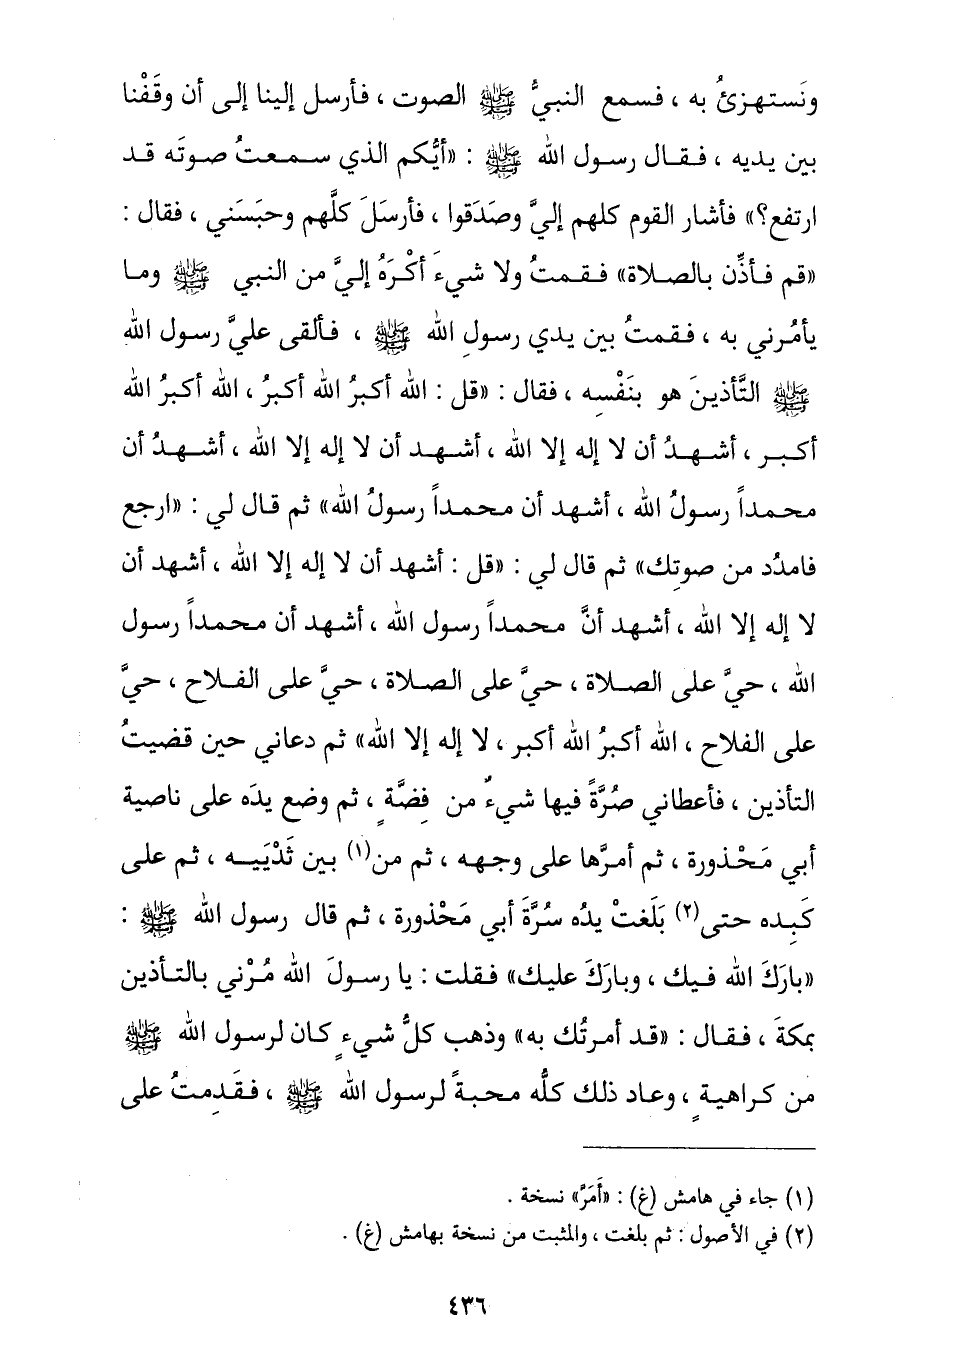 ونَستهزئُ به ، فسمع النبيُّ ﷺ الصوت ، فأرسل إلينا إلى أن وقَفْنا
بين يديه ، فقال رسول الله ﷺ : «أيُّكم الذي سمعتُ صوتَه قد
ارتفع؟» فأشار القوم كلهم إليَّ وصَدَقوا ، فأرسَلَ كلَّهم وحبَسَني ، فقال :
«قم فأذِّن بالصلاة» فقمتُ ولا شيءَ أكْرَهُ إليَّ من النبي ﷺ وما
يأمُرني به ، فقمتُ بين يدي رسولِ الله ﷺ ، فألقى عليَّ رسول الله
ﷺ التَّأذينَ هو بنَفْسِه ، فقال : «قل : الله أكبرُ الله أكبرُ ، الله أكبرُ الله
أكبر ، أشهدُ أن لا إله إلا الله ، أشهد أن لا إله إلا الله ، أشهدُ أن
محمداً رسولُ الله ، أشهد أن محمداً رسولُ الله» ثم قال لي : «ارجع
فامدُد من صوتِك» ثم قال لي : «قل : أشهد أن لا إله إلا الله ، أشهد أن
لا إله إلا الله ، أشهد أنَّ محمداً رسول الله ، أشهد أن محمداً رسول
الله ، حيَّ على الصلاة ، حيَّ على الصلاة ، حيَّ على الفلاح ، حيَّ
على الفلاح ، الله أكبرُ الله أكبر ، لا إله إلا الله» ثم دعاني حين قضيتُ
التأذين ، فأعطاني صُرَّةً فيها شيءٌ من فِضَّةٍ ، ثم وضع يدَه على ناصية
أبي مَحْذورة ، ثم أمرَّها على وجهه ، ثم من(١) بين ثَدْيَيه ، ثم على
كَبِده حتى(٢) بَلَغتْ يدُه سُرَّةَ أبي مَحْذورة ، ثم قال رسول الله ﷺ :
«بارَكَ الله فيك ، وبارَكَ عليك» فقلت : يا رسولَ الله مُرْني بالتأذين
بمكةَ ، فقال : «قد أمرتُك به» وذهب كلُّ شيءٍ كان لرسول الله ﷺ
من كراهيةٍ ، وعاد ذلك كلُّه محبةً لرسول الله ﷺ ، فقَدِمتُ على
(١) جاء في هامش (غ) : «أَمَرَّ» نسخة .
(٢) في الأصول : ثم بلغت ، والمثبت من نسخة بهامش (غ) .
٤٣٦